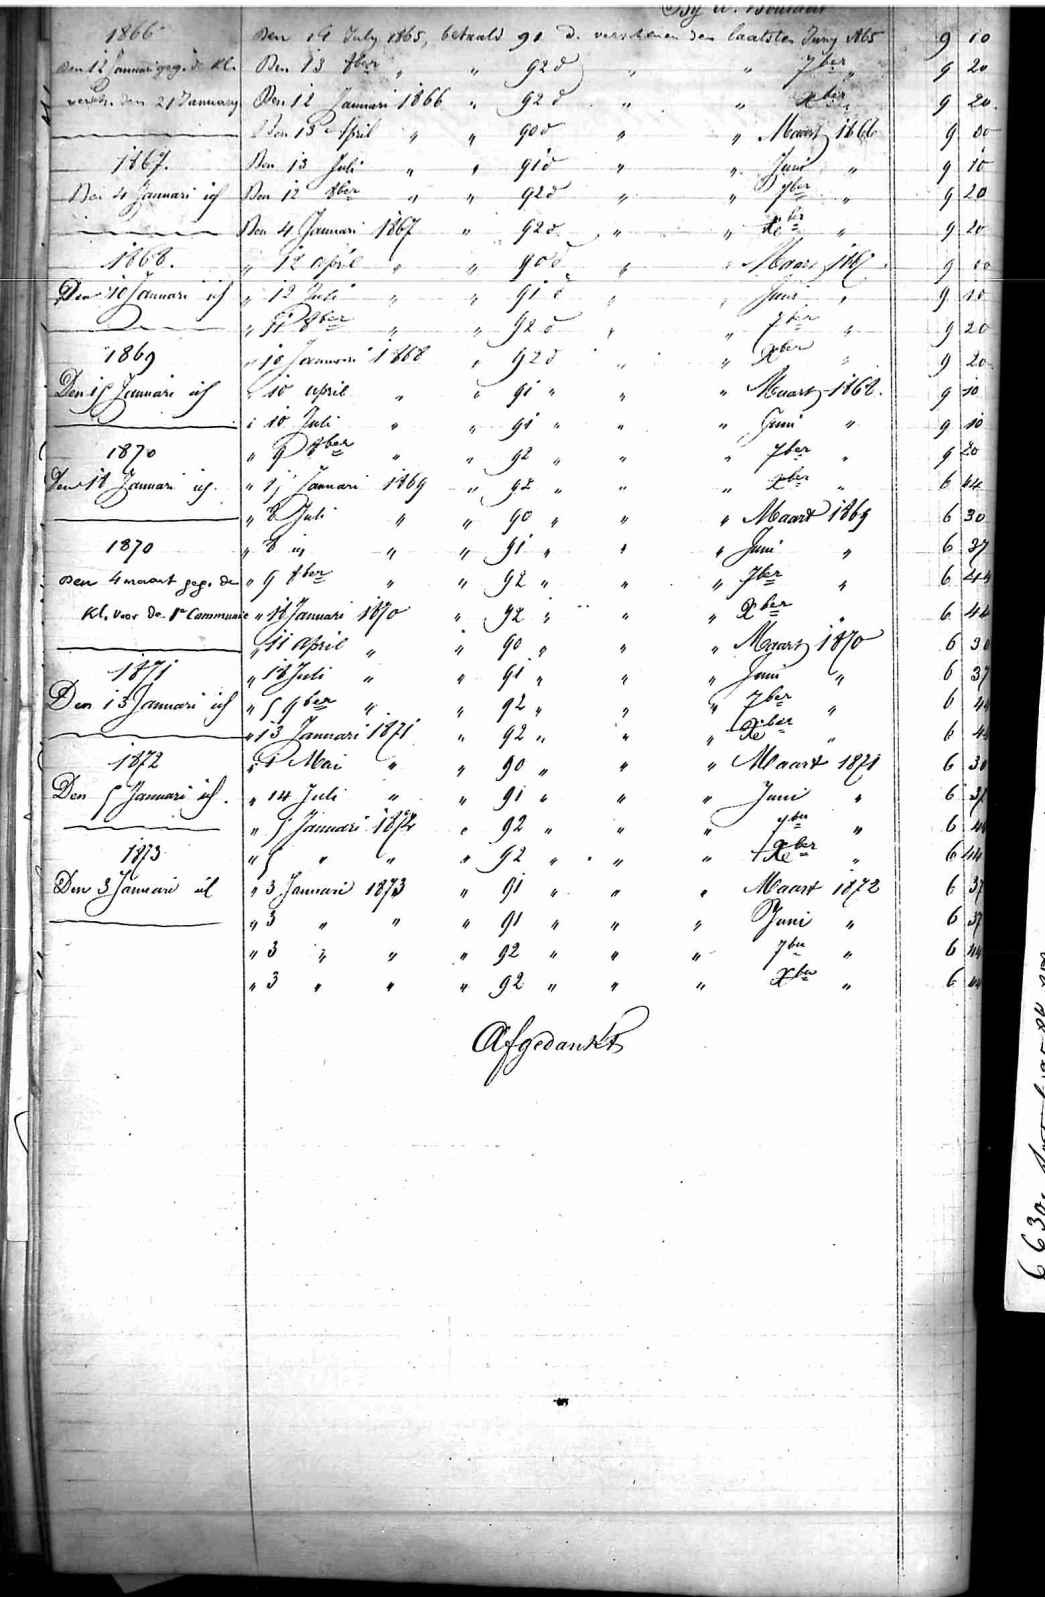 1866 Den 14 July 1865, betaald 91 d. verschenen den laatsten Juny 1865 9 10
Den 12 Januari geg. de Kl. Den 13 8ber " " 92 d " " 7ber " 9 20
versch. den 21 January Den 12 Januari 1866 " 92 d " " Xber " 9 20
Den 13 April " " 90 d " " Maart 1866 9 00
1867. Den 13 Juli " " 91 d " " Juni " 9 10
Den 4 Januari ich Den 12 8ber " " 92 d " " 7ber " 9 20
Den 4 Januari 1867 " 92 d " " Xber " 9 20
1868. " 12 april " " 90 d " " Maart 1867 9 00
Den 10 Januari ich " 12 Juli " " 91 d " " Juni " 9 10
" 11 8ber " " 92 d " " 7ber " 9 20
1869 " 10 Januari 1868 " 92 d " " Xber " 9 20
Den 15 Januari ich " 10 april " " 91 " " " Maart 1868. 9 10
" 10 Juli " " 91 " " " Juni " 9 10
1870 " 9 8ber " " 92 " " " 7ber " 9 20
Den 18 Januari ich. " 15 Januari 1869 " 92 " " " Xber " 6 44
" 8 Juli " " 90 " " " Maart 1869 6 30
1870 " 8 " " " 91 " " " Juni " 6 37
Den 4 maart geg. de " 9 8ber " " 92 " " " 7ber " 6 44
Kl. voor de 1e Communie " 18 Januari 1870 " 92 " " " Xber " 6 44
" 11 april " " 90 " " " Maart 1870 6 30
1871 " 18 Juli " " 91 " " " Juni " 6 37
Den 13 Januari ich " 5 9ber " " 92 " " " 7ber " 6 44
" 13 Januari 1871 " 92 " " " Xber " 6 44
1872 " 1 Mai " " 90 " " " Maart 1871 6 30
Den 5 Januari ich. " 14 Juli " " 91 " " " Juni " 6 37
" 5 Januari 1872 " 92 " " " 7ber " 6 44
1873 " 5 " " " 92 " " " Xber " 6 44
Den 3 Januari ich " 3 Januari 1873 " 91 " " " Maart 1872 6 37
" 3 " " " 91 " " " Juni " 6 37
" 3 " " " 92 " " " 7ber " 6 44
" 3 " " " 92 " " " Xber " 6 44
Afgedankt